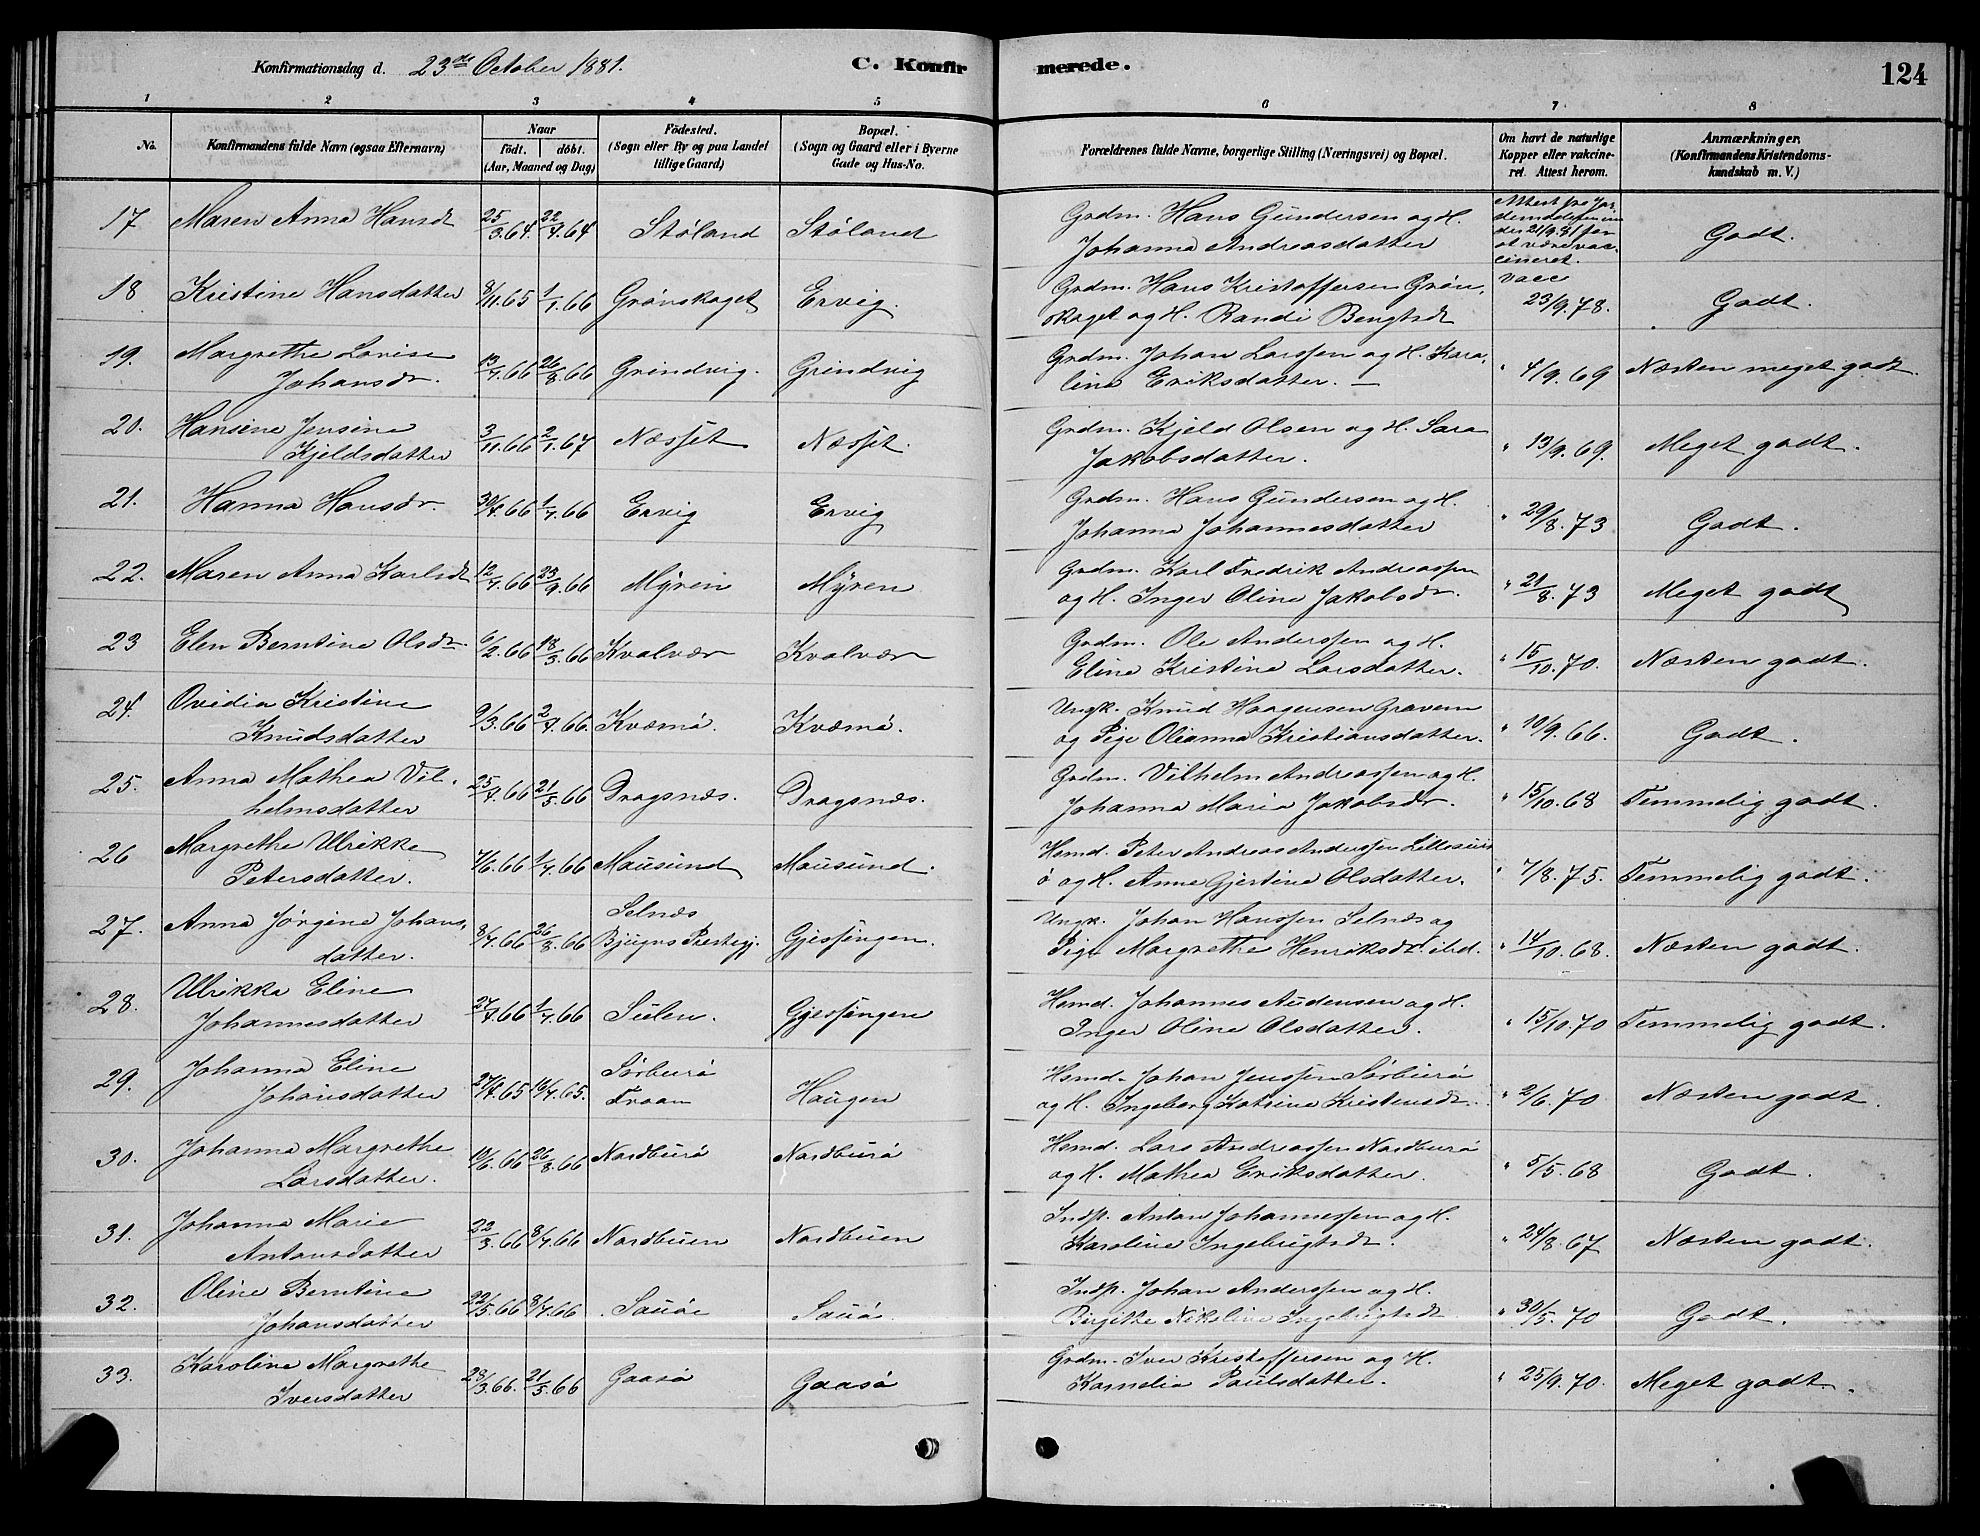 Konfirmationsdag d. 23de October 1881.
C. Konfirmerede.
124
1 2 3 4 5 6 7 8
No.
Konfirmandens fulde Navn (ogsaa Efternavn)
Naar
födt. döbt.
(Aar, Maaned og Dag)
Födested.
(Sogn eller By og paa Landet
tillige Gaard)
Bopæl.
(Sogn og Gaard eller i Byerne
Gade og Hus-No.
Forældrenes fulde Navne, borgerlige Stilling (Næringsvei) og Bopæl.
Om havt de naturlige
Kopper eller vakcine-
ret. Attest herom.
Anmærkninger,
(Konfirmandens Kristendoms-
kundskab m. V.)
17 Maren Anna Hansdt 25/3.64. 22/4.64 Støland Støland
Grdm. Hans Gundersen og H.
Johanna Andreasdatter
21/9.81 for
at være vac-
cineret.
Godt.
18 Kristine Hansdatter 8/11.65 1/1.66 Grønskaget Ervig.
Grdm. Hans Kristoffersen Grøn,
skaget og H. Randi Bengtsdt
vacc
23/9.78.
Godt.
19. Margrethe Lovise
Johansdr. 13/7.66 26/8.66 Grindvig. Grindvig
Grdm. Johan Larssen og H. Karo,
line Eriksdatter. —
" 4/9.69 Næsten meget godt.
20. Hansine Jensine
Kjeldsdatter 3/11.66 2/1.67 Næsset Næsset.
Grdm. Kjeld Olsen og H. Sara
Jakobsdatter.
" 13/9.69. Meget godt.
21. Hanna Hansdr. 30/4.66 1/7.66 Ervig Ervig
Grdm. Hans Gundersen og H.
Johanna Johannesdatter
" 29/8.73 Godt.
22. Maren Anna Karlsdt 12/7.66 23/9.66 Myren Myren
Grdm. Karl Fredrik Andreassen
og H. Inger Oline Jakobsdr.
" 21/8.73 Meget godt
23 Elen Berntine Olsdr. 6/2.66 18/3.66 Kvalvær Kvalvær
Grdm. Ole Anderssen og H.
Eline Kristine Larsdatter.
" 15/10.70. Næsten godt.
24. Ovidia Kristine
Knudsdatter 9/3.66 2/4.66. Kvæmø. Kvæmø.
Ungk. Knud Haagensen
og Pige Olianna Kristiansdatter.
" 10/9.66. Godt.
25. Anna Mathea Vil,
helmsdatter 25/4.66 21/5.66 Dragsnæs. Dragsnæs.
Grdm. Vilhelm Andreassen og H.
Johanna Maria Jakobsdr.
" 15/10.68 Temmelig godt.
26 Margrethe Ulrikke
Petersdatter. 7/6.66 1/7.66 Mausund Mausund.
Hsmd. Peter Andreas Anderssen
ø og H. Anne Gjertine Olsdatter.
" 7/8.75. Temmelig godt.
27. Anna Jørgine Johans,
datter. 8/7.66 26/8.66 Selnæs
Bjugns Prestegj. Gjessingen.
Ungk. Johan Hanssen Selnæs og
Pige Margrethe Henriksdr. ibd.
" 14/10.68. Næsten godt.
28. Ulrikka Eline
Johannesdatter 27/4.66 1/7.66 Sulen. Gjessingen
Hsmd. Johannes Audensen og H.
Inger Oline Olsdatter.
" 15/10.70 Temmelig godt.
29. Johanna Eline
Johansdatter 27/4.65 16/7.65. Sørburø
Froan Haugen
Hsmd. Johan Jenssen Sørburø
og H. Ingeborg Katrine Kristensdr.
" 2/6.70 Næsten godt.
30. Johanna Margrethe
Larsdatter. 10/6.66 26/8.66 Nordburø Nordburø
Hsmd. Lars Andreassen Nordburø
og H. Mathea Eriksdatter.
" 5/5.68 Godt.
31. Johanna Marie
Antonsdatter 22/3.66 8/7.66 Nordbuen Nordbuen
Indp. Anton Johannessen og H.
Karoline Ingebrigtsdt.
" 24/8.67 Næsten godt.
32. Oline Berntine
Johansdatter 22/5.66 8/7.66 Sauø Sauø.
Indp. Johan Anderssen og H.
Birgitte Nikoline Ingebrigtsdt
" 30/5.70 Godt.
33. Karoline Margrethe
Iversdatter 23/3.66. 21/5.66 Gaasø Gaasø
Grdm. Iver Kristoffersen og H.
Kornelia Paulsdatter.
" 25/9.70. Meget godt.